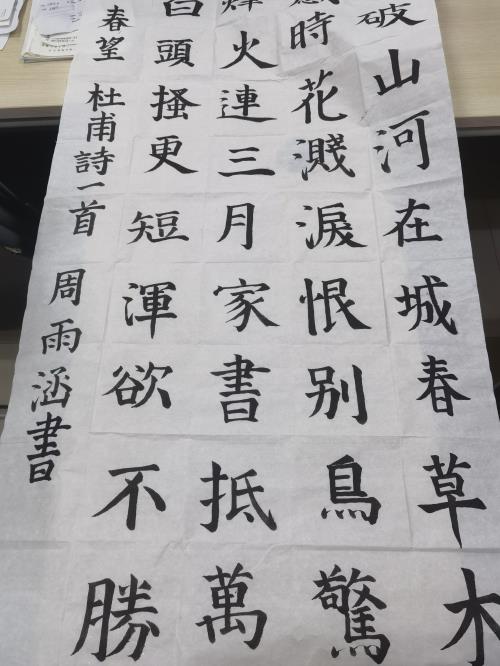 破山河在城春草木
感時花濺淚恨别鳥驚
烽火連三月家書抵萬
白頭搔更短渾欲不勝
春望 杜甫詩一首 周雨涵書